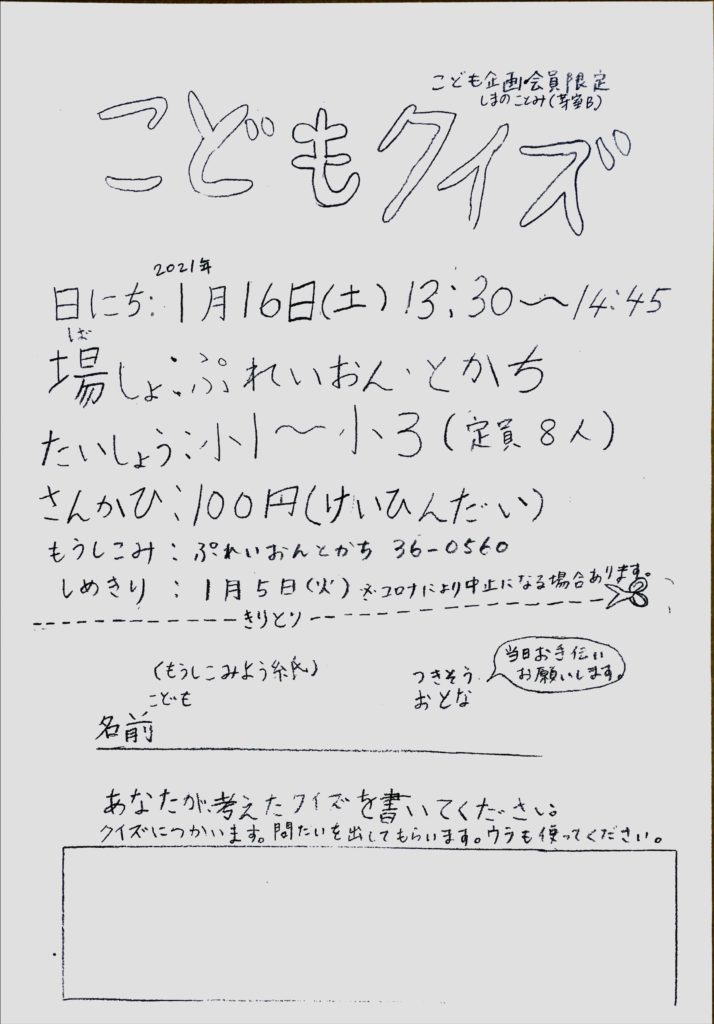 こども企画会員限定
しまのことみ(芽室B)
こどもクイズ
2021年
日にち:1月16日(土)13:30〜14:45
ば
場しょ:ぷれいおん・とかち
たいしょう:小1〜小3(定員8人)
さんかひ:100円(けいひんだい)
もうしこみ:ぷれいおんとかち 36-0560
しめきり:1月5日(火)※コロナにより中止になる場合あります。
きりとり
(もうしこみよう紙)
こども
つきそう
おとな
当日お手伝い
お願いします。
名前
あなたが考えたクイズを書いてください。
クイズにつかいます。問だいを出してもらいます。ウラも使ってください。